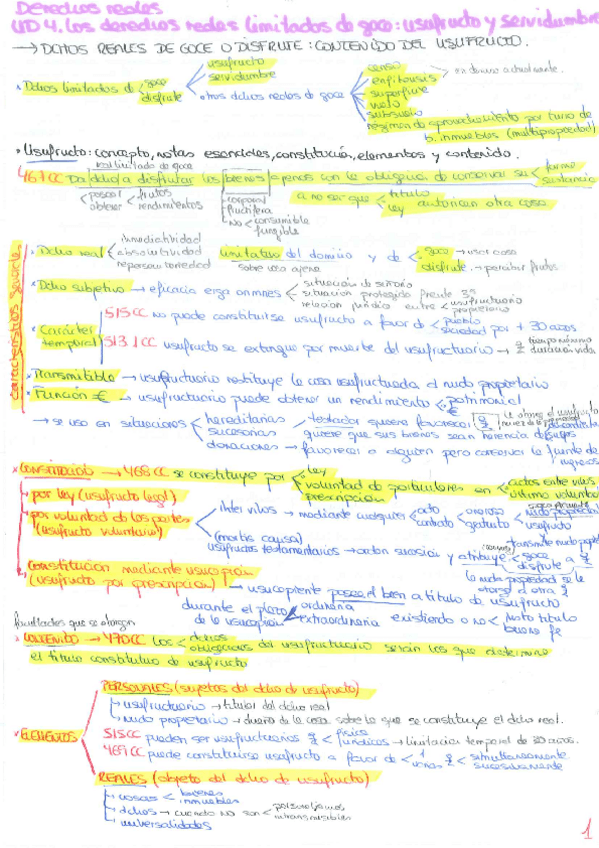 Derechos reales
UD 4. Los derechos reales limitados de goce: usufructo y servidumbre
→ DCHOS REALES DE GOCE O DISFRUTE: CONTENIDO DEL USUFRUCTO.
• Dchos limitados d goce disfrute
usufructo
servidumbre
otros dchos reales de goce
censo
enfiteusis
superficie
vuelo
subsuelo
régimen de aprovechamiento por turno de b. inmuebles (multipropiedad)
en desuso actualmente.
• Usufructo: concepto, notas esenciales, constitución, elementos y contenido.
real limitado de goce
467 CC Da dcho a disfrutar los bienes ajenos con la obligación de conservar su forma sustancia
poseer obtener frutos rendimientos
corporal
fructífera
NO consumible fungible
a no ser que título ley autoricen otra cosa
características generales
• Dcho real
inmediatividad
absolutividad
reipersecutoriedad
limitativo del dominio y de
sobre cosa ajena
goce → usar cosa
disfrute → percibir frutos
• Dcho subjetivo → eficacia erga omnes
situación de señorío
situación protegida frente 3º
relación jurídica entre usufructuario propietario
• Carácter temporal
515 CC no puede constituirse usufructo a favor de pueblo sociedad por + 30 años
513.1 CC usufructo se extingue por muerte del usufructuario →
tiempo máximo duración vida
• Transmitible → usufructuario restituye la cosa usufructuada al nudo propietario
• Función € → usufructuario puede obtener un rendimiento patrimonial €
→ se usa en situaciones
hereditarias
sucesorias
donaciones → favorecer a alguien pero conservar la fuente de ingresos
testador quiere favorecer
quiere que sus bienes sean herencia de
• CONSTITUCIÓN → 468 CC se constituye por
ley
voluntad de particulares en actos entre vivos última voluntad
prescripción
• por ley (usufructo legal)
• por voluntad de las partes (usufructo voluntario)
inter vivos → mediante cualquier acto contrato oneroso gratuito
nuda propiedad
usufructo
(mortis causa)
usufructos testamentarios →
transmite nuda propiedad
y atribuye goce disfrute a
la nuda propiedad se le otorga a otra
• Constitución mediante usucapión (usufructo por prescripción)
→ usucapiente posee el bien a título de usufructo
durante el plazo de la usucapión
ordinaria
extraordinaria
existiendo o no justo título buena fe
facultades que se otorgan
• CONTENIDO → 470 CC los dchos obligaciones del usufructuario serán los que determine
el título constitutivo de usufructo
• ELEMENTOS
PERSONALES (sujetos del dcho de usufructo)
usufructuario → titular del dcho real
nudo propietario → dueño de la cosa sobre la que se constituye el dcho real.
515 CC pueden ser usufructuarios física jurídicas → limitación temporal de 30 años.
469 CC puede constituirse usufructo a favor de 1 varias simultáneamente sucesivamente
REALES (objeto del dcho de usufructo)
cosas muebles inmuebles
dchos → cuando no son personalísimos intransmisibles
universalidades
1